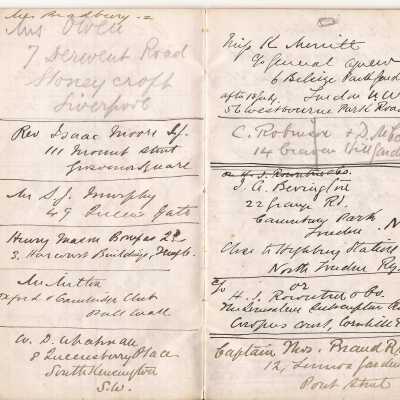 Mrs Bradbury
Mrs Owen
7 Derwent Road
Stoneycroft
Liverpool
Rev Isaac Moore S.J.
111 Mount Street
Grosvenor Square
Mr S.J. Murphy
49 Queens Gate
Henry Mason Bompas
Harcourt Buildings, Temple
Mr
Oxford & Cambridge Club
Pall Mall
W. D. Chapman
8 Queensbury Place
South Kensington
S.W.
Miss K Merritt
General
6 Belsize Park
London N.W
56 Westbourne Park Road
C. Robinson
14 Craven Hill Gardens
or H. J. Rowntree & Co.
J. A. Bevington
22 Grange Rd.
Canonbury Park
London N
Close to Highbury Station
North London Ry
or
H. J. Rowntree & Co
Cornhill
Captain Thos. Beaud
12, Lennox Gardens
Pont Street